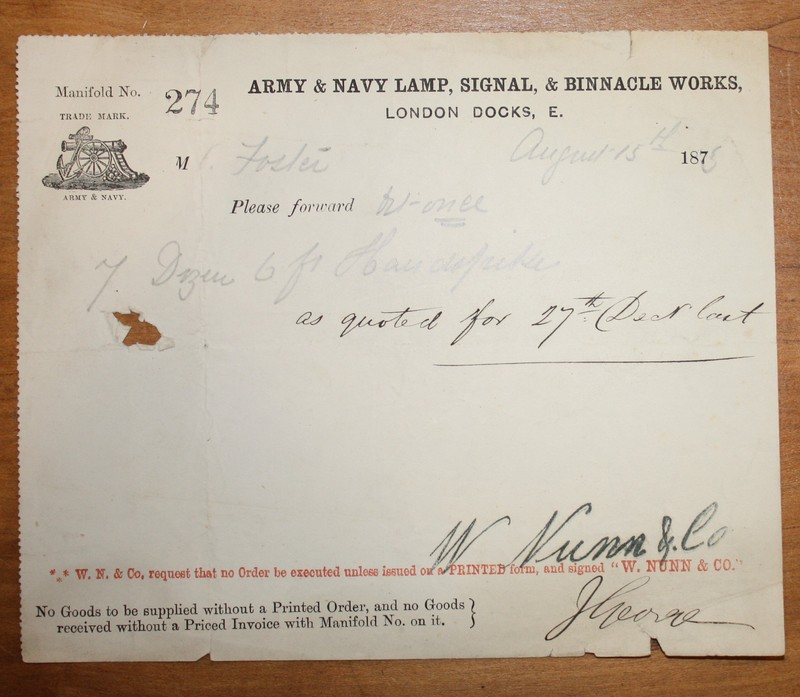 Manifold No. 274
ARMY & NAVY LAMP, SIGNAL, & BINNACLE WORKS,
LONDON DOCKS, E.
TRADE MARK.
ARMY & NAVY.
August 15th 187
M Foster
Please forward at once
7 Dozen 6 ft Handspike
as quoted for 27th last
W Nunn & Co
*** W. N. & Co, request that no Order be executed unless issued on a PRINTED form, and signed "W. NUNN & CO."
No Goods to be supplied without a Printed Order, and no Goods
received without a Priced Invoice with Manifold No. on it.
J George